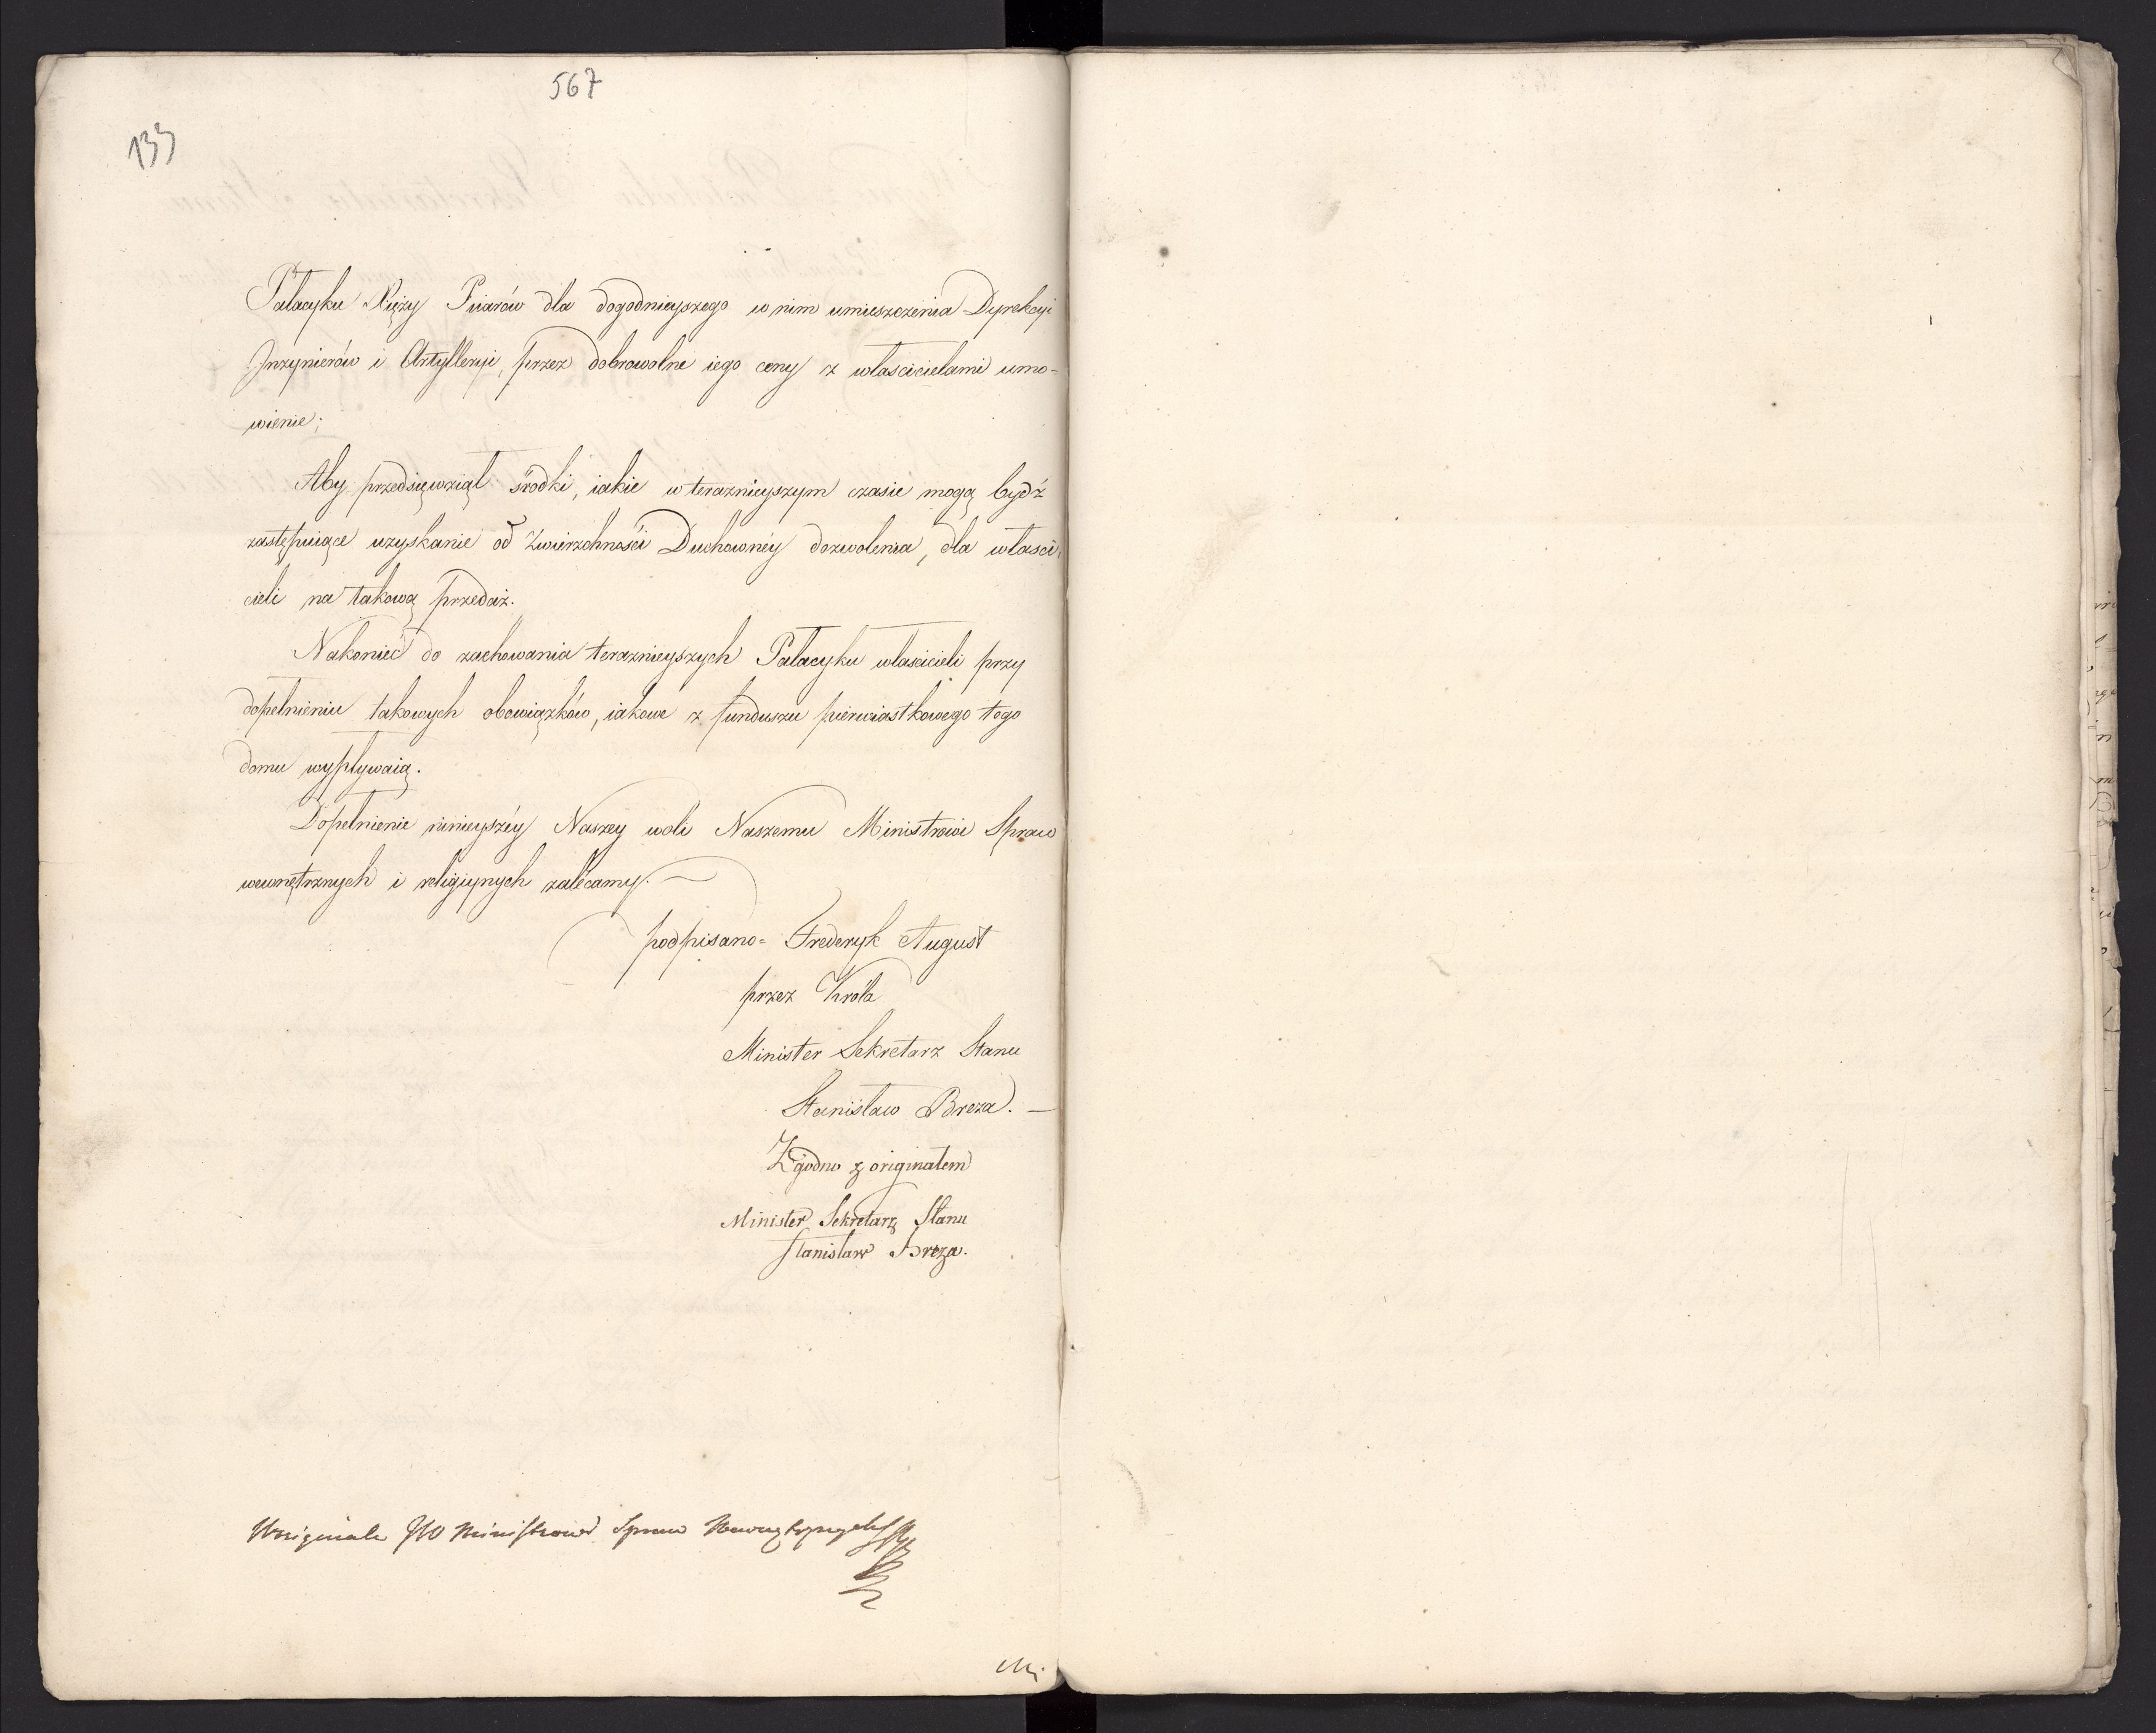 567
133
Pałacyku Xięży Piiarów dla dogodnieyszego w nim umieszczenia Dyrekcyi
Inzynierów i Artylleryi, przez dobrowolne iego ceny z właścicielami umo-
wienie;
Aby przedsięwziął środki, iakie w teraznieyszym czasie mogą bydź
zastępuiące uzyskanie od Zwierzchności Duchownéy dozwolenia, dla właści-
cieli na takową przedaż.
Nakoniec do zachowania teraznieyszych Pałacyku właścicieli przy
dopełnieniu takowych obowiązków, iakowe z funduszu pierwiastkowego tego
domu wypływaią.
Dopełnienie ninieyszéy Naszey woli Naszemu Ministrowi Spraw
wewnętrznych i religiynych zalécamy.
podpisano= Frederyk August
przez Króla
Minister Sekretarz Stanu
Stanisław Breza. —
Zgodno z originałem
Minister Sekretarz Stanu
Stanisław Breza.
Ministrowi Spraw Wewnętrznych